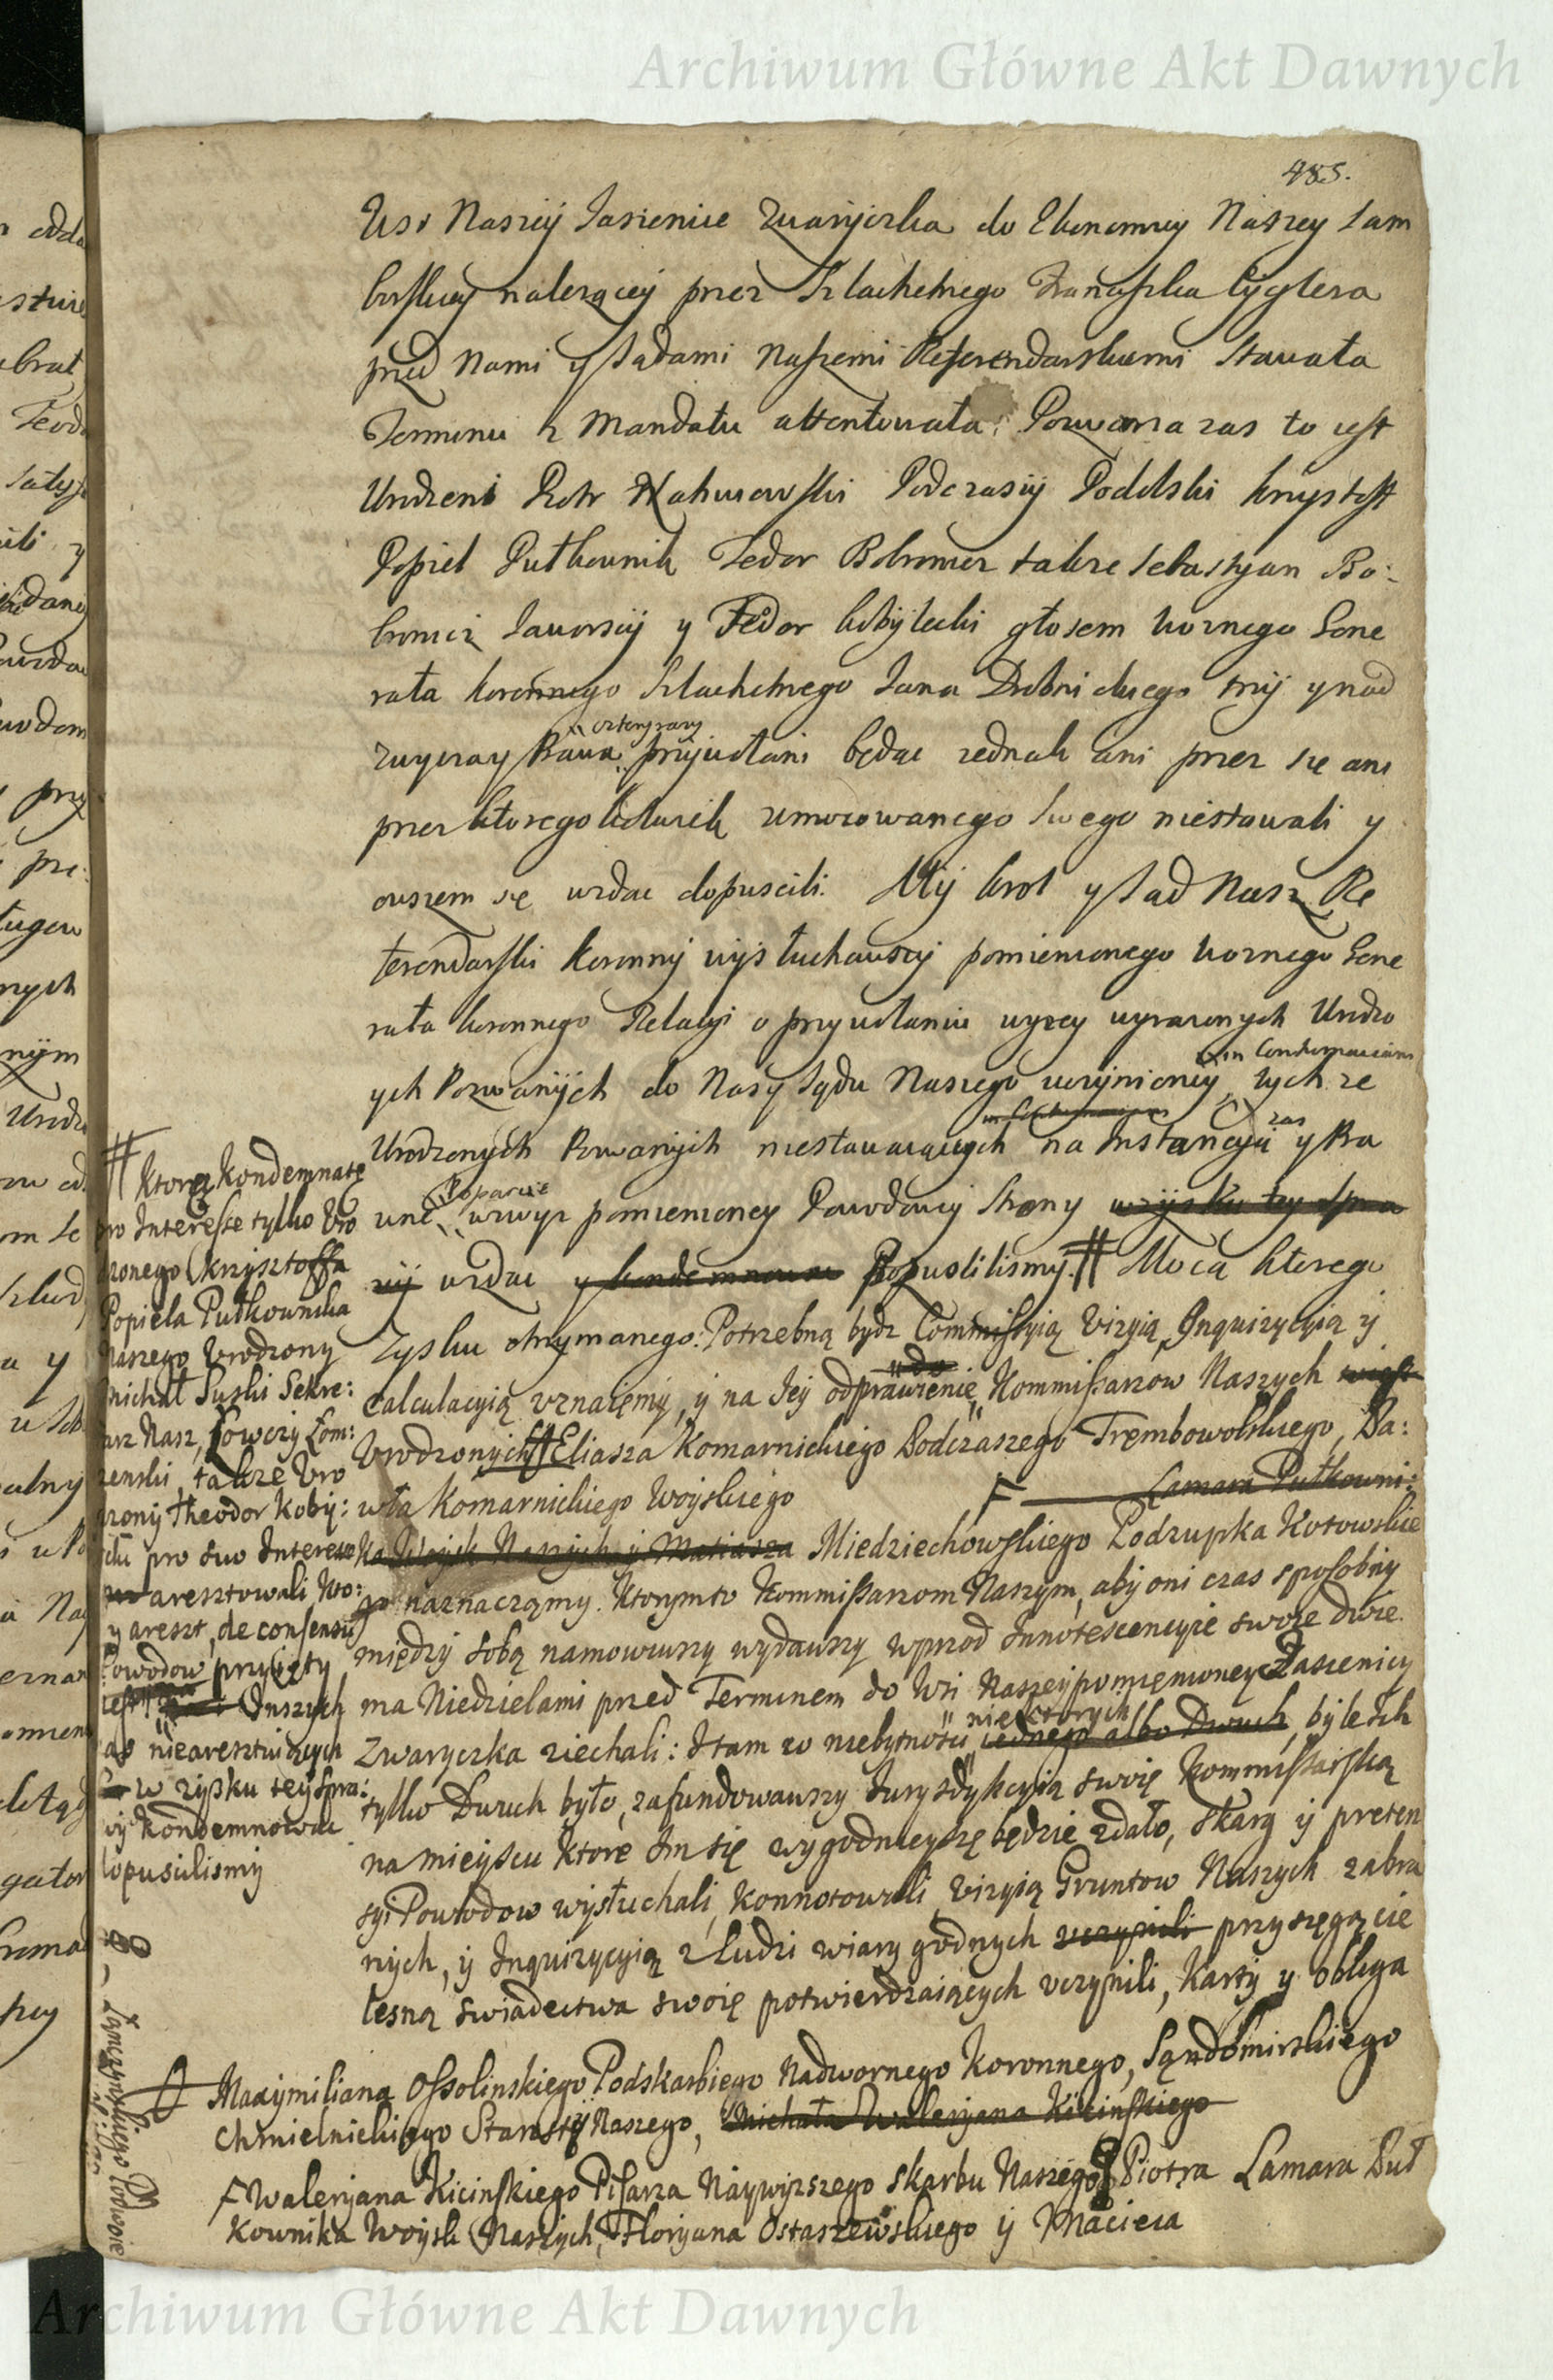 Archiwum Główne Akt Dawnych
485.
Wsi Naszey Jasienice Zwaryczka do Ekonomiey Naszey Sam
borskiey nalezącey przez Szlachetnego Franciszka Cyglera
przed Nami y Sądami Naszemi Referendarskiemi Stawała
Terminu z Mandatu attentowała. Pozwana zas to iest
Urodzeni Piotr Podczaszy Podolski Krysztoff
Popiel Pułkownik Fedor także Sebastyan Bo:
Jaworscy y Fedor Kobylecki głosem Woznego Gene
rała koronnego Szlachetnego Jana trzy y nad
zwyczay Prawa czteryrazy przywołani będąc iednak ani przez się ani
przez ktoregokolwiek umocowanego swego niestawali y
owszem się wzdac dopuscili. My krol y Sąd Nasz Re
ferendarski Koronny wysłuchawszy pomienionego Woznego Gene
rała koronnego Relacyi o przywołaniu wyzey wyrazonych Urodzo
ych Pozwanych do Nas y Sądu Naszego uczynioney in Contumaciam tych ze
Urodzonych Pozwanych niestawaiących na Instancyą zas y Pra
wne Poparcie wzwyz pomienioney Powodowey Strony w zysku tey Spra
wy wzdac y kondemnowac Dopuscilismy # Mocą ktorego
Zysku otrzymanego: Potrzebną bydz Commissyią Wizyią Inquizycyią y
Calculacyią uznaięmy, y na Jey odprawienie Kommissarzow Naszych
Urodzonych Eliasza Komarnickiego Podczaszego Trembowolskiego, Pa:
wła Komarnickiego Woyskiego F Lamara Pułkowni:
ka Woysk Naszych y Matiasza Miedziechowskiego Podzupka Kotowskie
go naznaczamy. Ktorymto Kommissarzom Naszym, aby oni czas sposobny
między sobą namowiwszy wydawszy wprzod Innotescencyie swoie dwie
ma Niedzielami przed Terminem do Wsi Naszey pomięnioney Jasienicy
Zwaryczka ziechali: Itam w niebytnosci niektorych iednego albo Dwuch, byle Ich
tylko Dwuch było, zafundowawszy Jurysdykcyią swoię Kommissarską
na mieyscu ktore Im się wygodnieysze będzie zdało, skarg y preten
syi Powodow wysłuchali, Konnotowali, Wizyią Gruntow Naszych zabra
nych, y Inquizycyią z Ludzi wiary godnych uczynili przysięgą cie
lesną swiadectwa swoię potwierdzaiących uczynili, Karty y obliga
# Ktorą Kondemnatę
pro Interesse tylko Uro
dzonego Krzysztoffa
Popiela Pułkownika
Naszego Urodzony
Michał Suski Sekre:
tarz Nasz, Łowczy Łom:
zenski, także Uro
dzony Theodor Koby:
lecki pro suo Interesse
aresztowali, Kto:
ry areszt, de consensu
Powodow przyięty
iest Inszych
as niearesztuiących
w zysku tey Spra:
wy Kondemnowac
dopuscilismy
Maxymiliana Ossolinskiego Podskarbiego Nadwornego Koronnego, Sąndomirskiego
Chmielnickiego Starosty Naszego, Michała Waleryana Kicinskiego
F Waleryana Kicinskiego Pisarza Naywyzszego Skarbu Naszego Piotra Lamara Puł
kownika Woysk Naszych, Floryana Ostaszewskiego y Macieia
Archiwum Główne Akt Dawnych